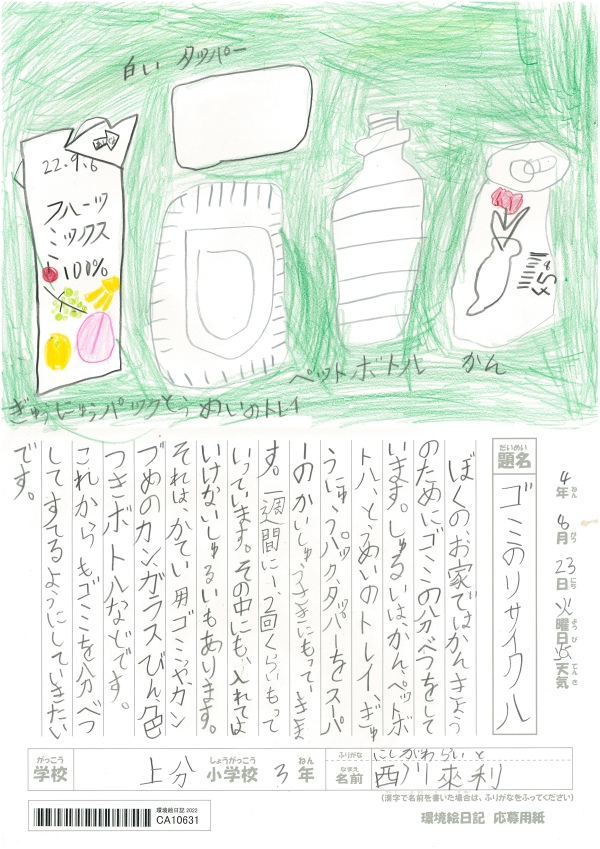 白い タッパー
22.9.6
フルーツ
ミックス
100%
ぎゅうにゅうパック
とうめいのトレイ
ペットボトル
かん
4年8月23日火曜日天気
だいめい
題名
ゴミのリサイクル
ぼくの、お家ではかんきょう
のためにゴミの分べつをして
います。しゅるいはかん、ペットボ
トル、とうめいのトレイ、ぎゅ
うにゅうパック、タッパーをスーパ
ーのかいしゅう
にもっていきま
す。一週間に1、2回くらいもって
いっています。その中にも、入れては
いけないしゅるいもあります。
それは、かてい用ゴミやカン
づめのカンガラスびん、色
つきボトルなどです。
これからもゴミを分べつ
してすてるようにしていきたい
です。
がっこう
学校
上分
しょうがっこう
小学校
3年
ふりがな
にしがわらいと
なまえ
名前
西川來利
(漢字で名前を書いた場合は、ふりがなをふってください)
環境絵日記 2022
CA10631
環境絵日記 応募用紙